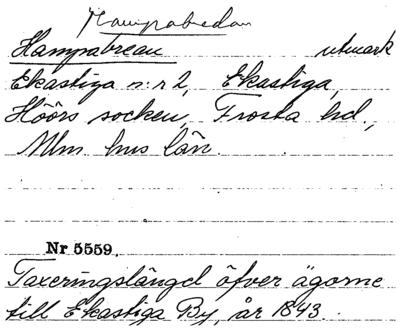 Hampabredan
Hampabrean utmark
Ekastiga n:r 2, Ekastiga,
Höörs socken, Frosta hd.,
Mlm hus län.
Nr 5559.
Taxeringslängd öfver ägorne
till Ekastiga By, år 1843.